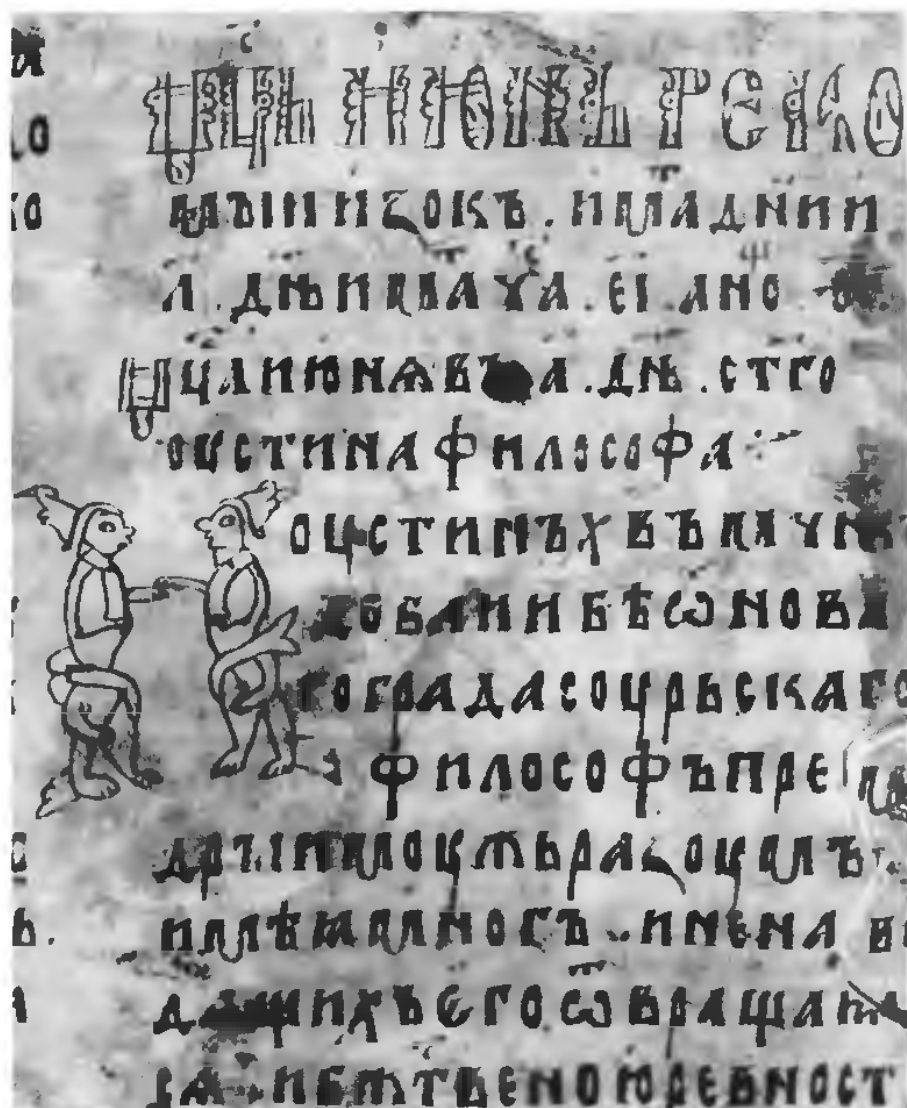 мць июнь реко
мъıи изокъ . има днии
л . днь има ча . еı . а но
мца июнѧ въ а . днь . стго
оустина философа
оустинъ х бъ
бѣ ѡ нова
го града соурьскаго
философъ прем
дръıи моужь разоумъ
имѣꙗ многъ . имена
его ѡвращаꙗ
сѧ . и бжтвеною ревност